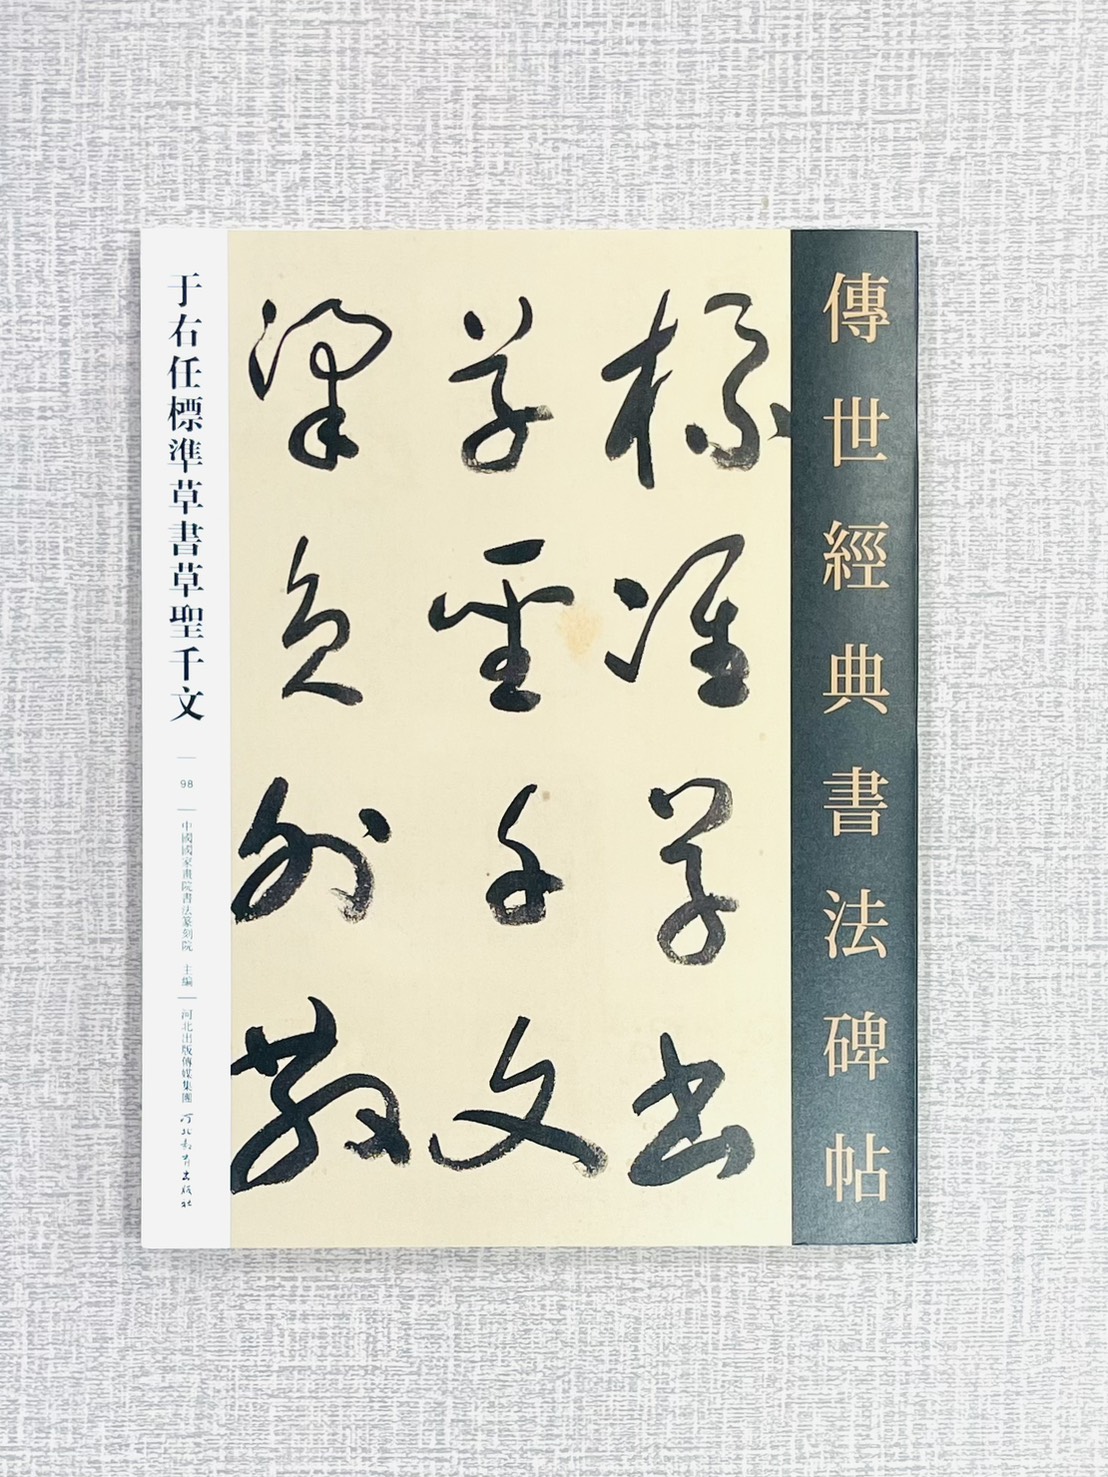 傳世經典書法碑帖
標準草書
草聖千文
梁員外散
于右任標準草書草聖千文
98
中國國家畫院書法篆刻院 主編
河北出版傳媒集團
河北教育出版社